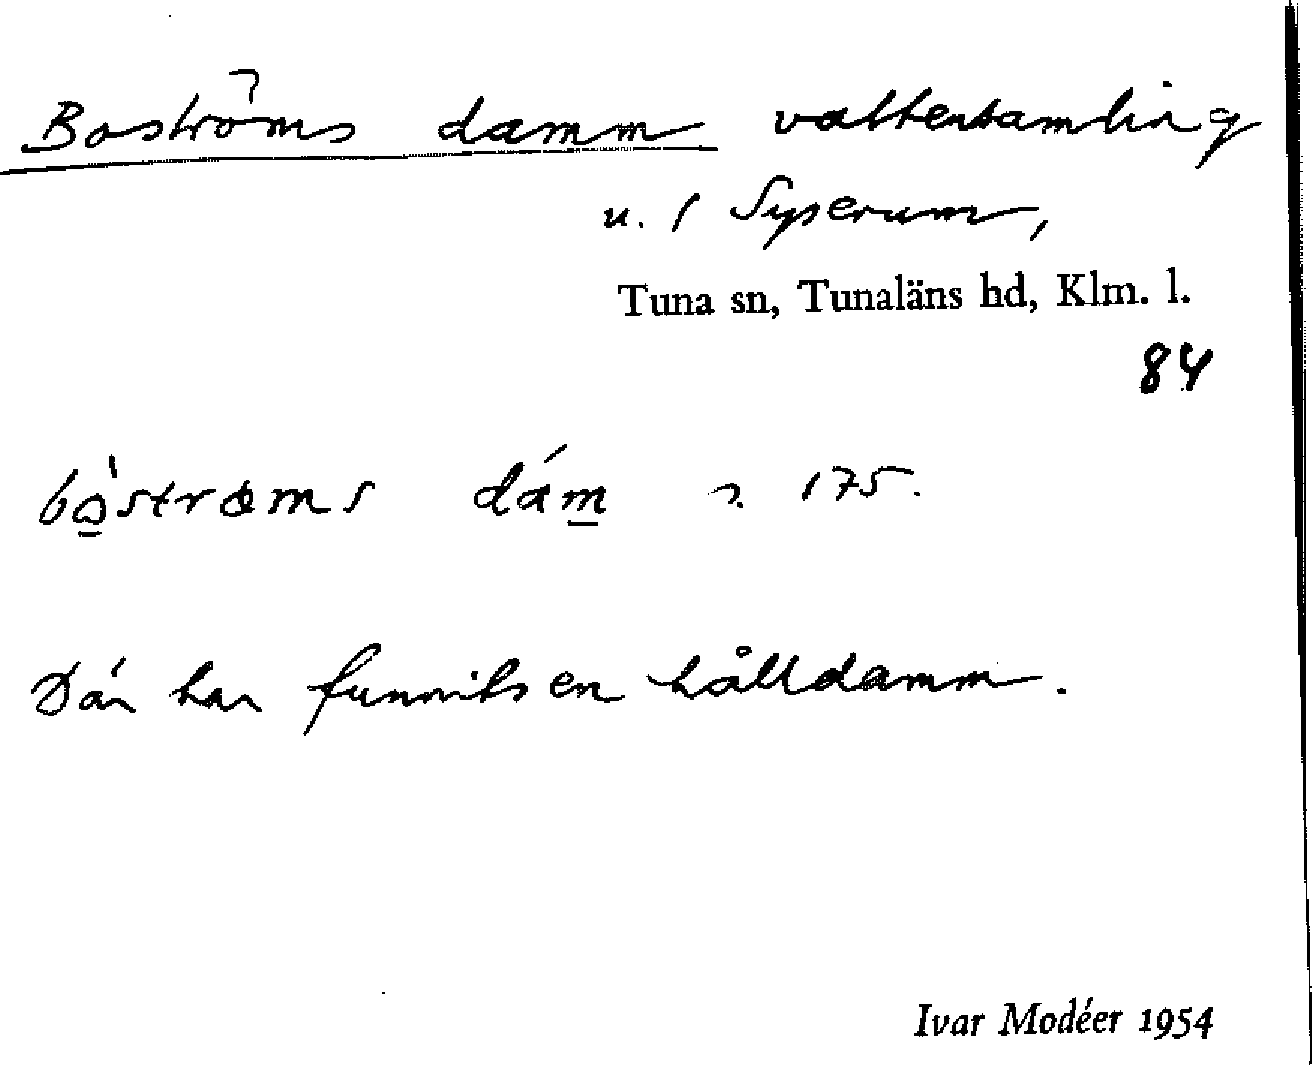 Boströms damm vattensamling
u. / Syserum,
Tuna sn, Tunaläns hd, Klm. l.
84
bo̲ ́strøms dám̲ 175.
Där har funnits en hålldamm.
Ivar Modéer 1954